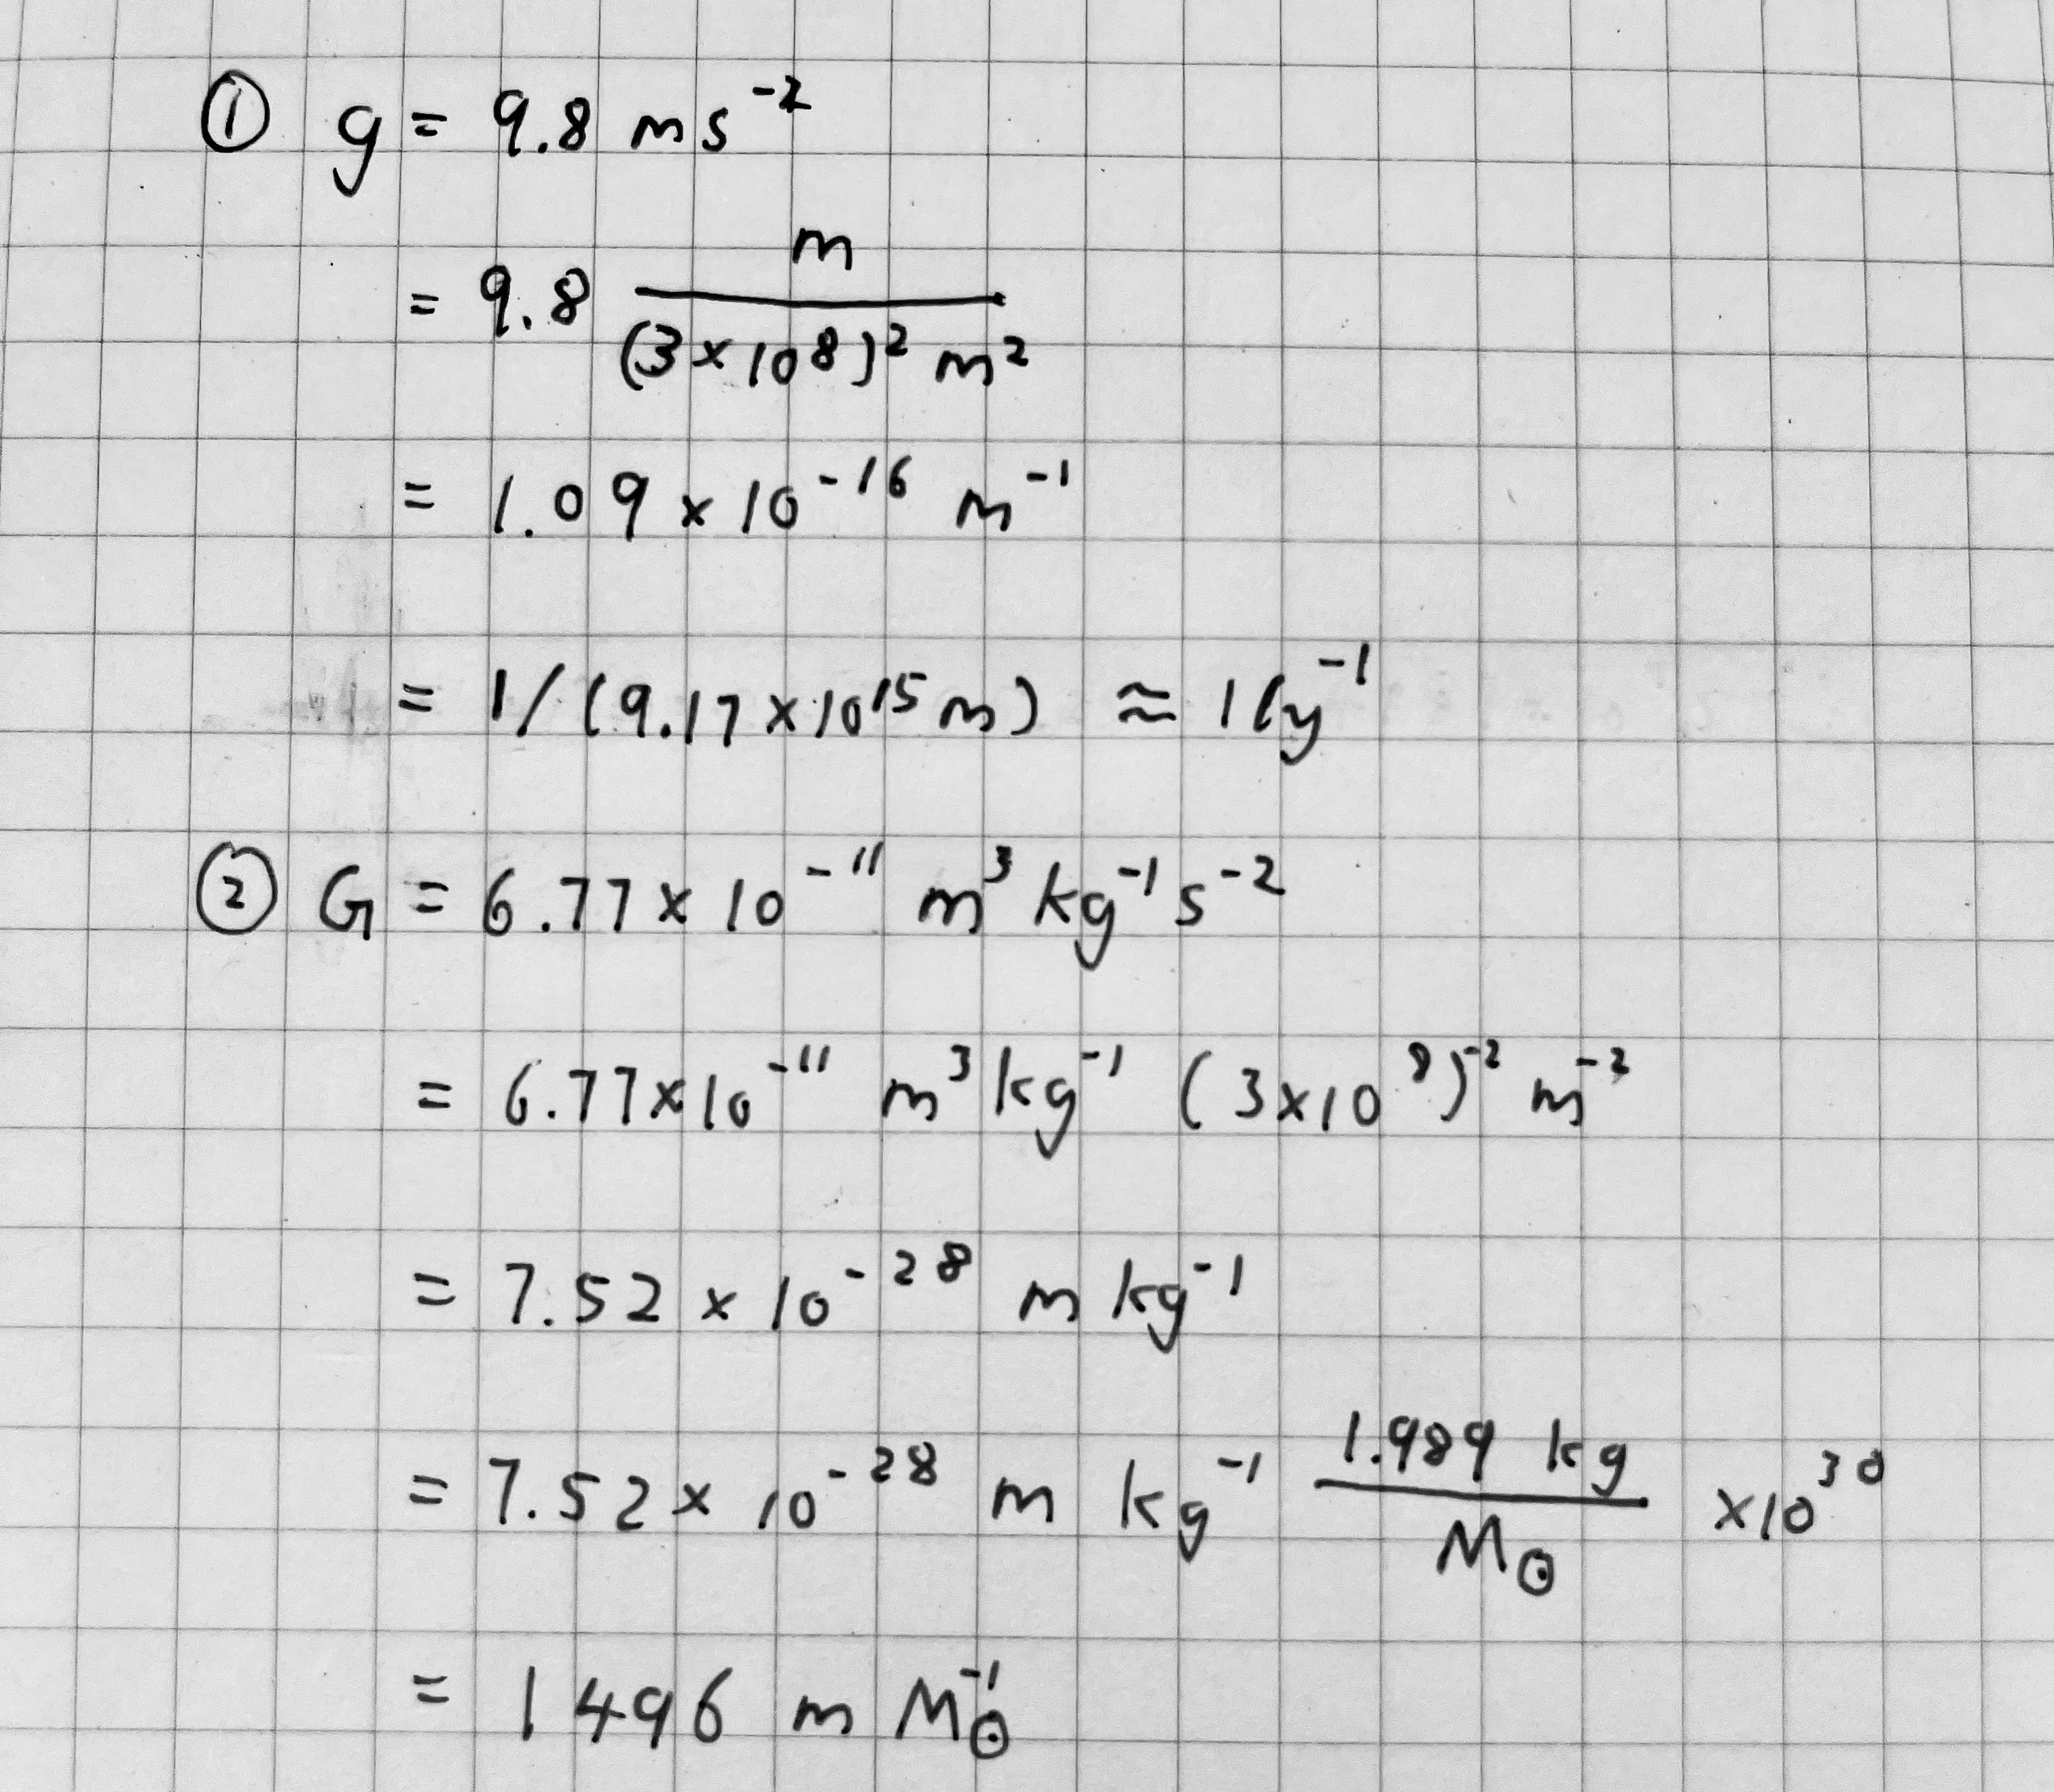 ① g = 9.8 m s⁻²
= 9.8 m / (3 × 10⁸)² m²
= 1.09 × 10⁻¹⁶ m⁻¹
= 1/(9.17 × 10¹⁵ m) ≈ 1 ly⁻¹
② G = 6.77 × 10⁻¹¹ m³ kg⁻¹ s⁻²
= 6.77 × 10⁻¹¹ m³ kg⁻¹ (3 × 10⁸)⁻² m⁻²
= 7.52 × 10⁻²⁸ m kg⁻¹
= 7.52 × 10⁻²⁸ m kg⁻¹ 1.989 kg / M⊙ × 10³⁰
= 1496 m M⊙⁻¹